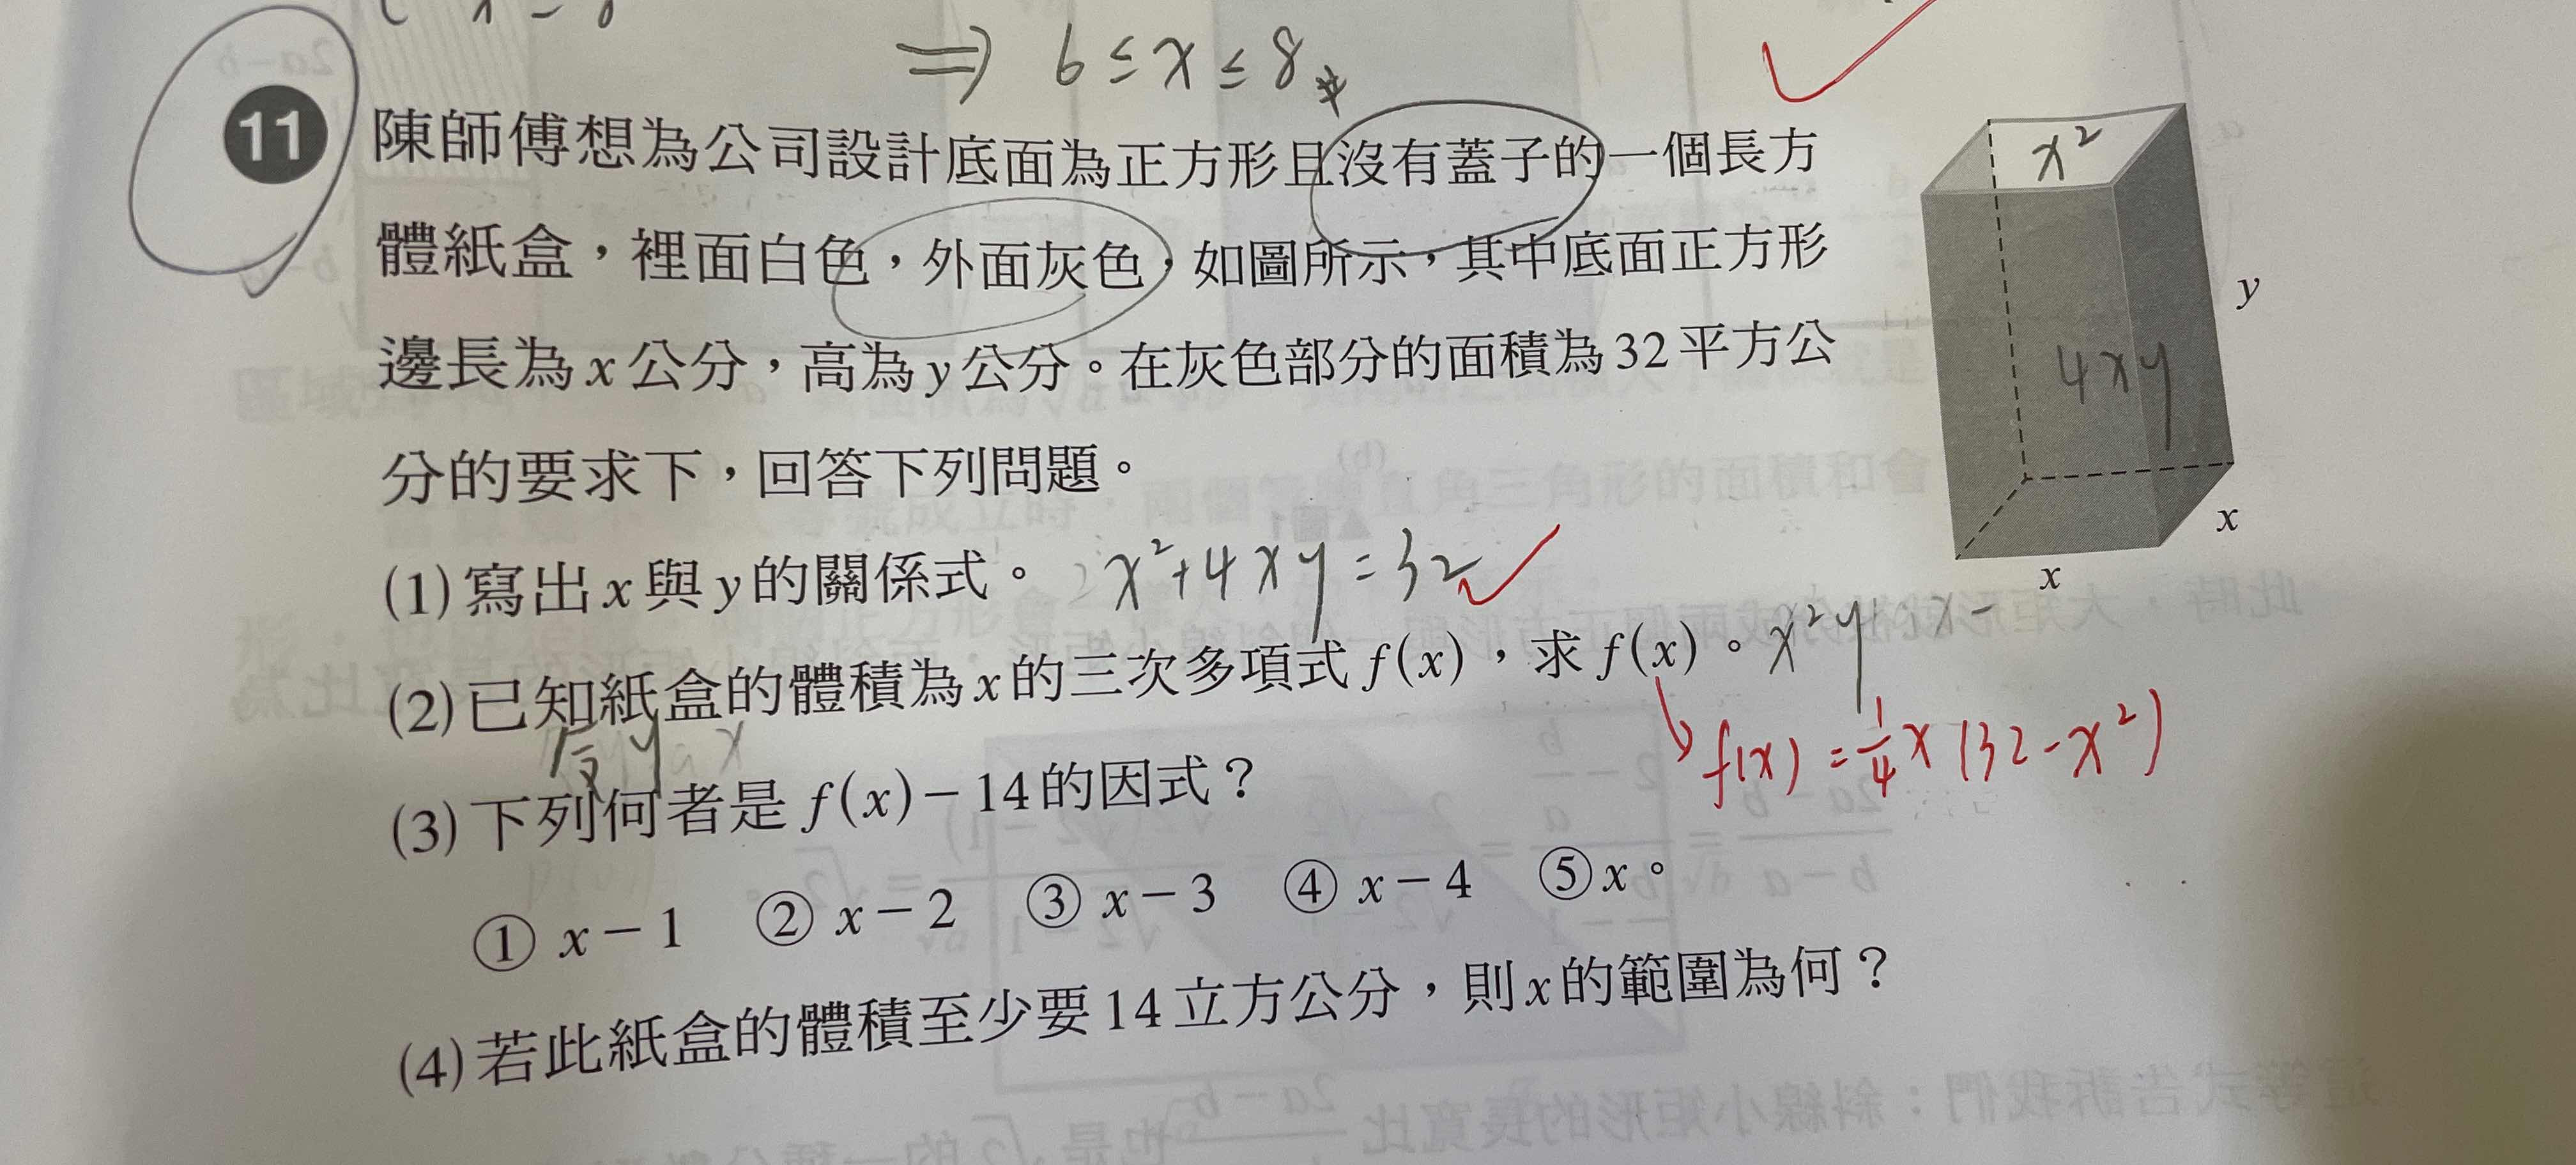 ⇒ 6 ≤ x ≤ 8
11 陳師傅想為公司設計底面為正方形且沒有蓋子的一個長方
體紙盒，裡面白色，外面灰色，如圖所示，其中底面正方形
邊長為 x 公分，高為 y 公分。在灰色部分的面積為 32 平方公
分的要求下，回答下列問題。
x²
y
4xy
x
x
(1) 寫出 x 與 y 的關係式。 x²+4xy=32
(2) 已知紙盒的體積為 x 的三次多項式 f(x)，求 f(x)。 x²y
f(x) = 1/4 x (32-x²)
(3) 下列何者是 f(x)－14 的因式？
① x－1 ② x－2 ③ x－3 ④ x－4 ⑤ x。
(4) 若此紙盒的體積至少要 14 立方公分，則 x 的範圍為何？